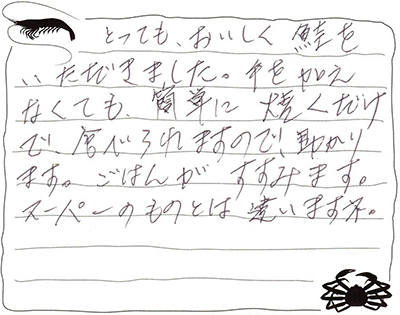 とっても、おいしく 鮭を
いただきました。手を加え
なくても、簡単に 焼くだけ
で、食べられますので、助かり
ます。ごはんが すすみます。
スーパーのものとは 違いますネ。